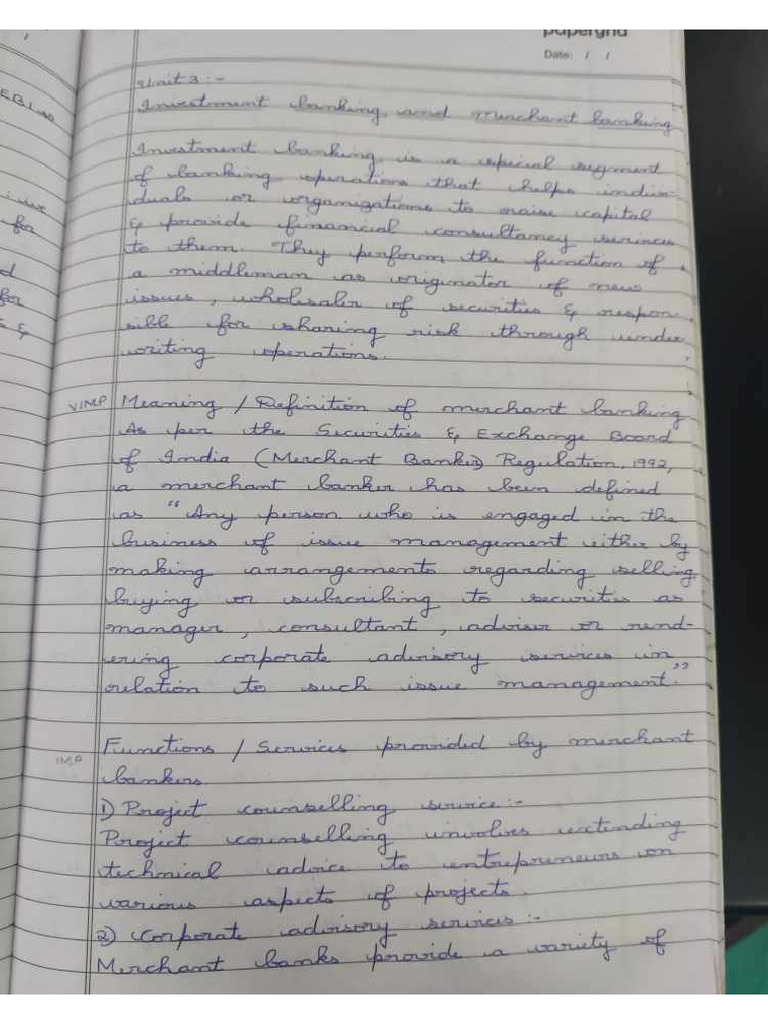 papergrid
Date: / /
Unit 3 :-
Investment banking and merchant banking
Investment banking is a special segment
of banking operations that helps indivi-
duals or organizations to raise capital
& provide financial consultancy services
to them. They perform the function of
a middleman as originator of new
issues, wholesaler of securities & respon-
sible for sharing risk through under
writing operations.
VIMP Meaning / Definition of merchant banking
As per the Securities & Exchange Board
of India (Merchant Banker) Regulation, 1992,
a merchant banker has been defined
as "Any person who is engaged in the
business of issue management either by
making arrangements regarding selling
buying or subscribing to securities as
manager, consultant, adviser or rend-
ering corporate advisory services in
relation to such issue management."
IMP Functions / Services provided by merchant
bankers
1) Project counselling service :-
Project counselling involves extending
technical advice to entrepreneurs on
various aspects of projects.
2) Corporate advisory services :-
Merchant banks provide a variety of
EBI
for
d
for
&